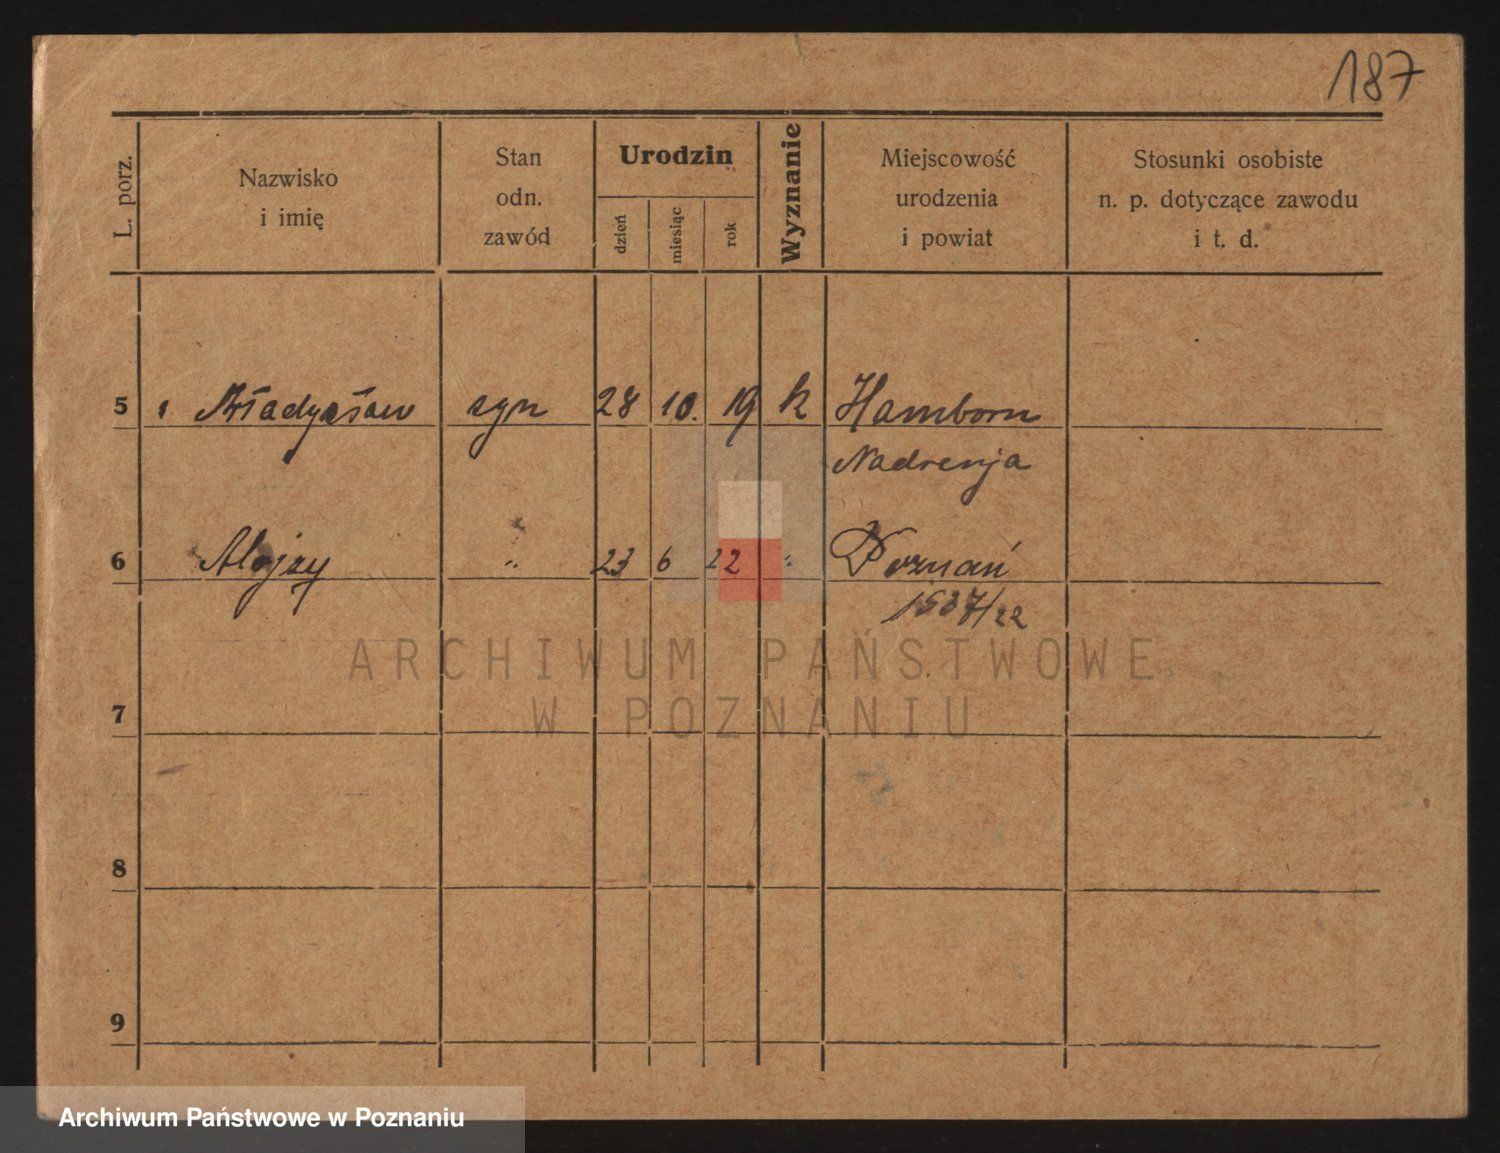 187
L. porz.
Nazwisko
i imię
Stan
odn.
zawód
Urodzin
dzień
miesiąc
rok
Wyznanie
Miejscowość
urodzenia
i powiat
Stosunki osobiste
n. p. dotyczące zawodu
i t. d.
5 Władysław syn 28 10. 19 k Hamborn
Nadrenja
6 Alojzy " 23 6 22 " Poznań
1537/22
7
8
9
ARCHIWUM PAŃSTWOWE
W POZNANIU
Archiwum Państwowe w Poznaniu